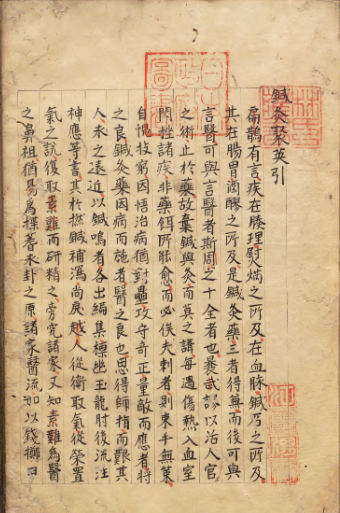 鍼灸聚英引
扁鵲有言疾在腠理熨焫之所及在血脉鍼石之所及
其在腸胃酒醪之所及是鍼灸藥三者得兼而後可與
言醫可與言醫者斯周之十全者也曩武謬以活人官
之術止於藥故棄鍼與灸而莫之講每遇傷熱入血室
閃挫諸疾非藥餌所能愈而必俟夫刺者則束手無策
自愧技窮因悟治病猶對壘攻守奇正量敵而應者將
之良鍼灸藥因病而施者醫之良也思得師指而艱其
人求之遠近以鍼鳴者各出編集標幽玉龍肘後流注
神應等書其於撚鍼補瀉尚戾越人從衛取氣從榮置
氣之說復取素難而研精之旁究諸家又知素難為醫
之鼻祖猶易為揲蓍求卦之原諸家醫流如以錢擲